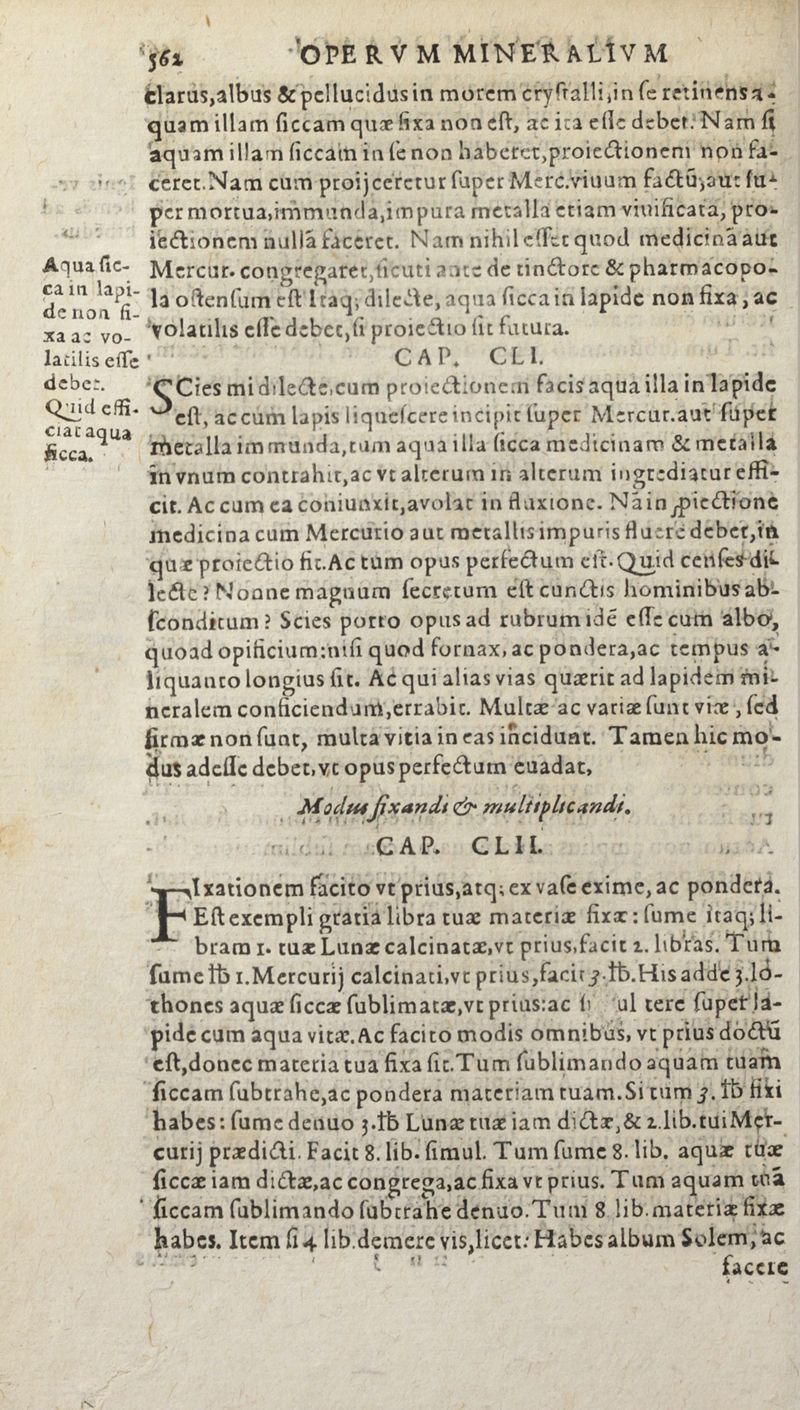 562 OPERVM MINERALIVM
clarus,albus & pellucidus in morem cryſtalli,in ſe retinens a-
quam illam ſiccam quæ fixa non eſt, ac ita eſſe debet. Nam ſi
aquam illam ſiccam in ſe non haberet,proiectionem non fa-
ceret.Nam cum proijceretur ſuper Merc.viuum factū,aut ſu-
per mortua,immunda,impura metalla etiam viuificata, pro-
iectionem nullā faceret. Nam nihil eſſet quod medicinā aut
Mercur. congregaret,ſicuti ante de tinctore & pharmacopo-
la oſtenſum eſt Itaq; dilecte, aqua ſicca in lapide non fixa, ac
volatilis eſſe debet,ſi proiectio ſit futura.
Aqua ſic-
ca in lapi-
de non fi-
xa ac vo-
latilis eſſe
debet.
Quid effi-
ciat aqua
ſicca.
CAP. CLI.
SCies mi dilecte,cum proiectionem facis aqua illa in lapide
eſt, ac cum lapis liqueſcere incipit ſuper Mercur.aut ſuper
metalla immunda,tum aqua illa ſicca medicinam & metalla
in vnum contrahit,ac vt alterum in alterum ingrediatur effi-
cit. Ac cum ea coniunxit,avolat in fluxione. Nā in ꝓiectione
medicina cum Mercurio aut metallis impuris fluere debet,in
quæ proiectio fit.Ac tum opus perfectum eſt. Quid cenſes di-
lecte? Nonne magnum ſecretum eſt cunctis hominibus ab-
ſconditum? Scies porro opus ad rubrum idē eſſe cum albo,
quoad opificium:niſi quod fornax, ac pondera,ac tempus a-
liquanto longius ſit. Ac qui alias vias quærit ad lapidem mi-
neralem conficiendum,errabit. Multæ ac variæ ſunt viæ, ſed
firmæ non ſunt, multa vitia in eas incidunt. Tamen hic mo-
dus adeſſe debet, vt opus perfectum euadat,
Modus fixandi & multiplicandi.
CAP. CLII.
FIxationem facito vt prius,atq; ex vaſe exime, ac pondera.
Eſt exempli gratia libra tuæ materiæ fixæ: ſume itaq; li-
bram 1. tuæ Lunæ calcinatæ,vt prius,facit 2. libras. Tum
ſume ℔ 1.Mercurij calcinati,vt prius,facit 3.℔.His adde 3.lo-
thones aquæ ſiccæ ſublimatæ,vt prius:ac ul tere ſuper la-
pide cum aqua vitæ.Ac facito modis omnibus, vt prius doctū
eſt,donec materia tua fixa ſit.Tum ſublimando aquam tuam
ſiccam ſubtrahe,ac pondera materiam tuam.Si tum 3. ℔ fixi
habes: ſume denuo 3.℔ Lunæ tuæ iam dictæ,& 2.lib.tui Mer-
curij prædicti. Facit 8. lib. ſimul. Tum ſume 8. lib. aquæ tuæ
ſiccæ iam dictæ,ac congrega,ac fixa vt prius. Tum aquam tuā
ſiccam ſublimando ſubtrahe denuo.Tum 8 lib.materiæ fixæ
habes. Item ſi 4 lib.demere vis,licet: Habes album Solem, ac
facere